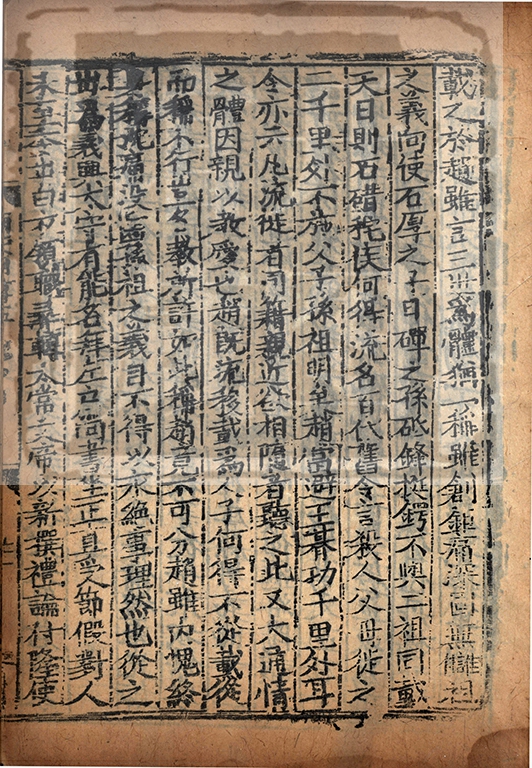 載之於趙雖言三世爲體猶一稱雖創鉅痛深固無讎祖
之義向使石厚之子日磾之孫砥鋒挺鍔不與二祖同戴
天日則石碏秺侯何得流名百代舊令言殺人父母徙之
二千里外不施父子孫祖明矣稍當避王朞功千里外耳
令亦云凡流徙者同籍親近欲相隨者聽之此又大通情
之體因親以教愛也趙旣流移載爲人子何得不從載從
而稱不行豈名教所許如此稱趙竟不可分趙雖內愧終
身稱沈痛沒齒孫祖之義自不得以永絶事理然也從之
出爲義興太守有能名拜左戶尚書坐正直受節假對人
未至委出白衣領職尋轉太常文帝以新撰禮論付隆使